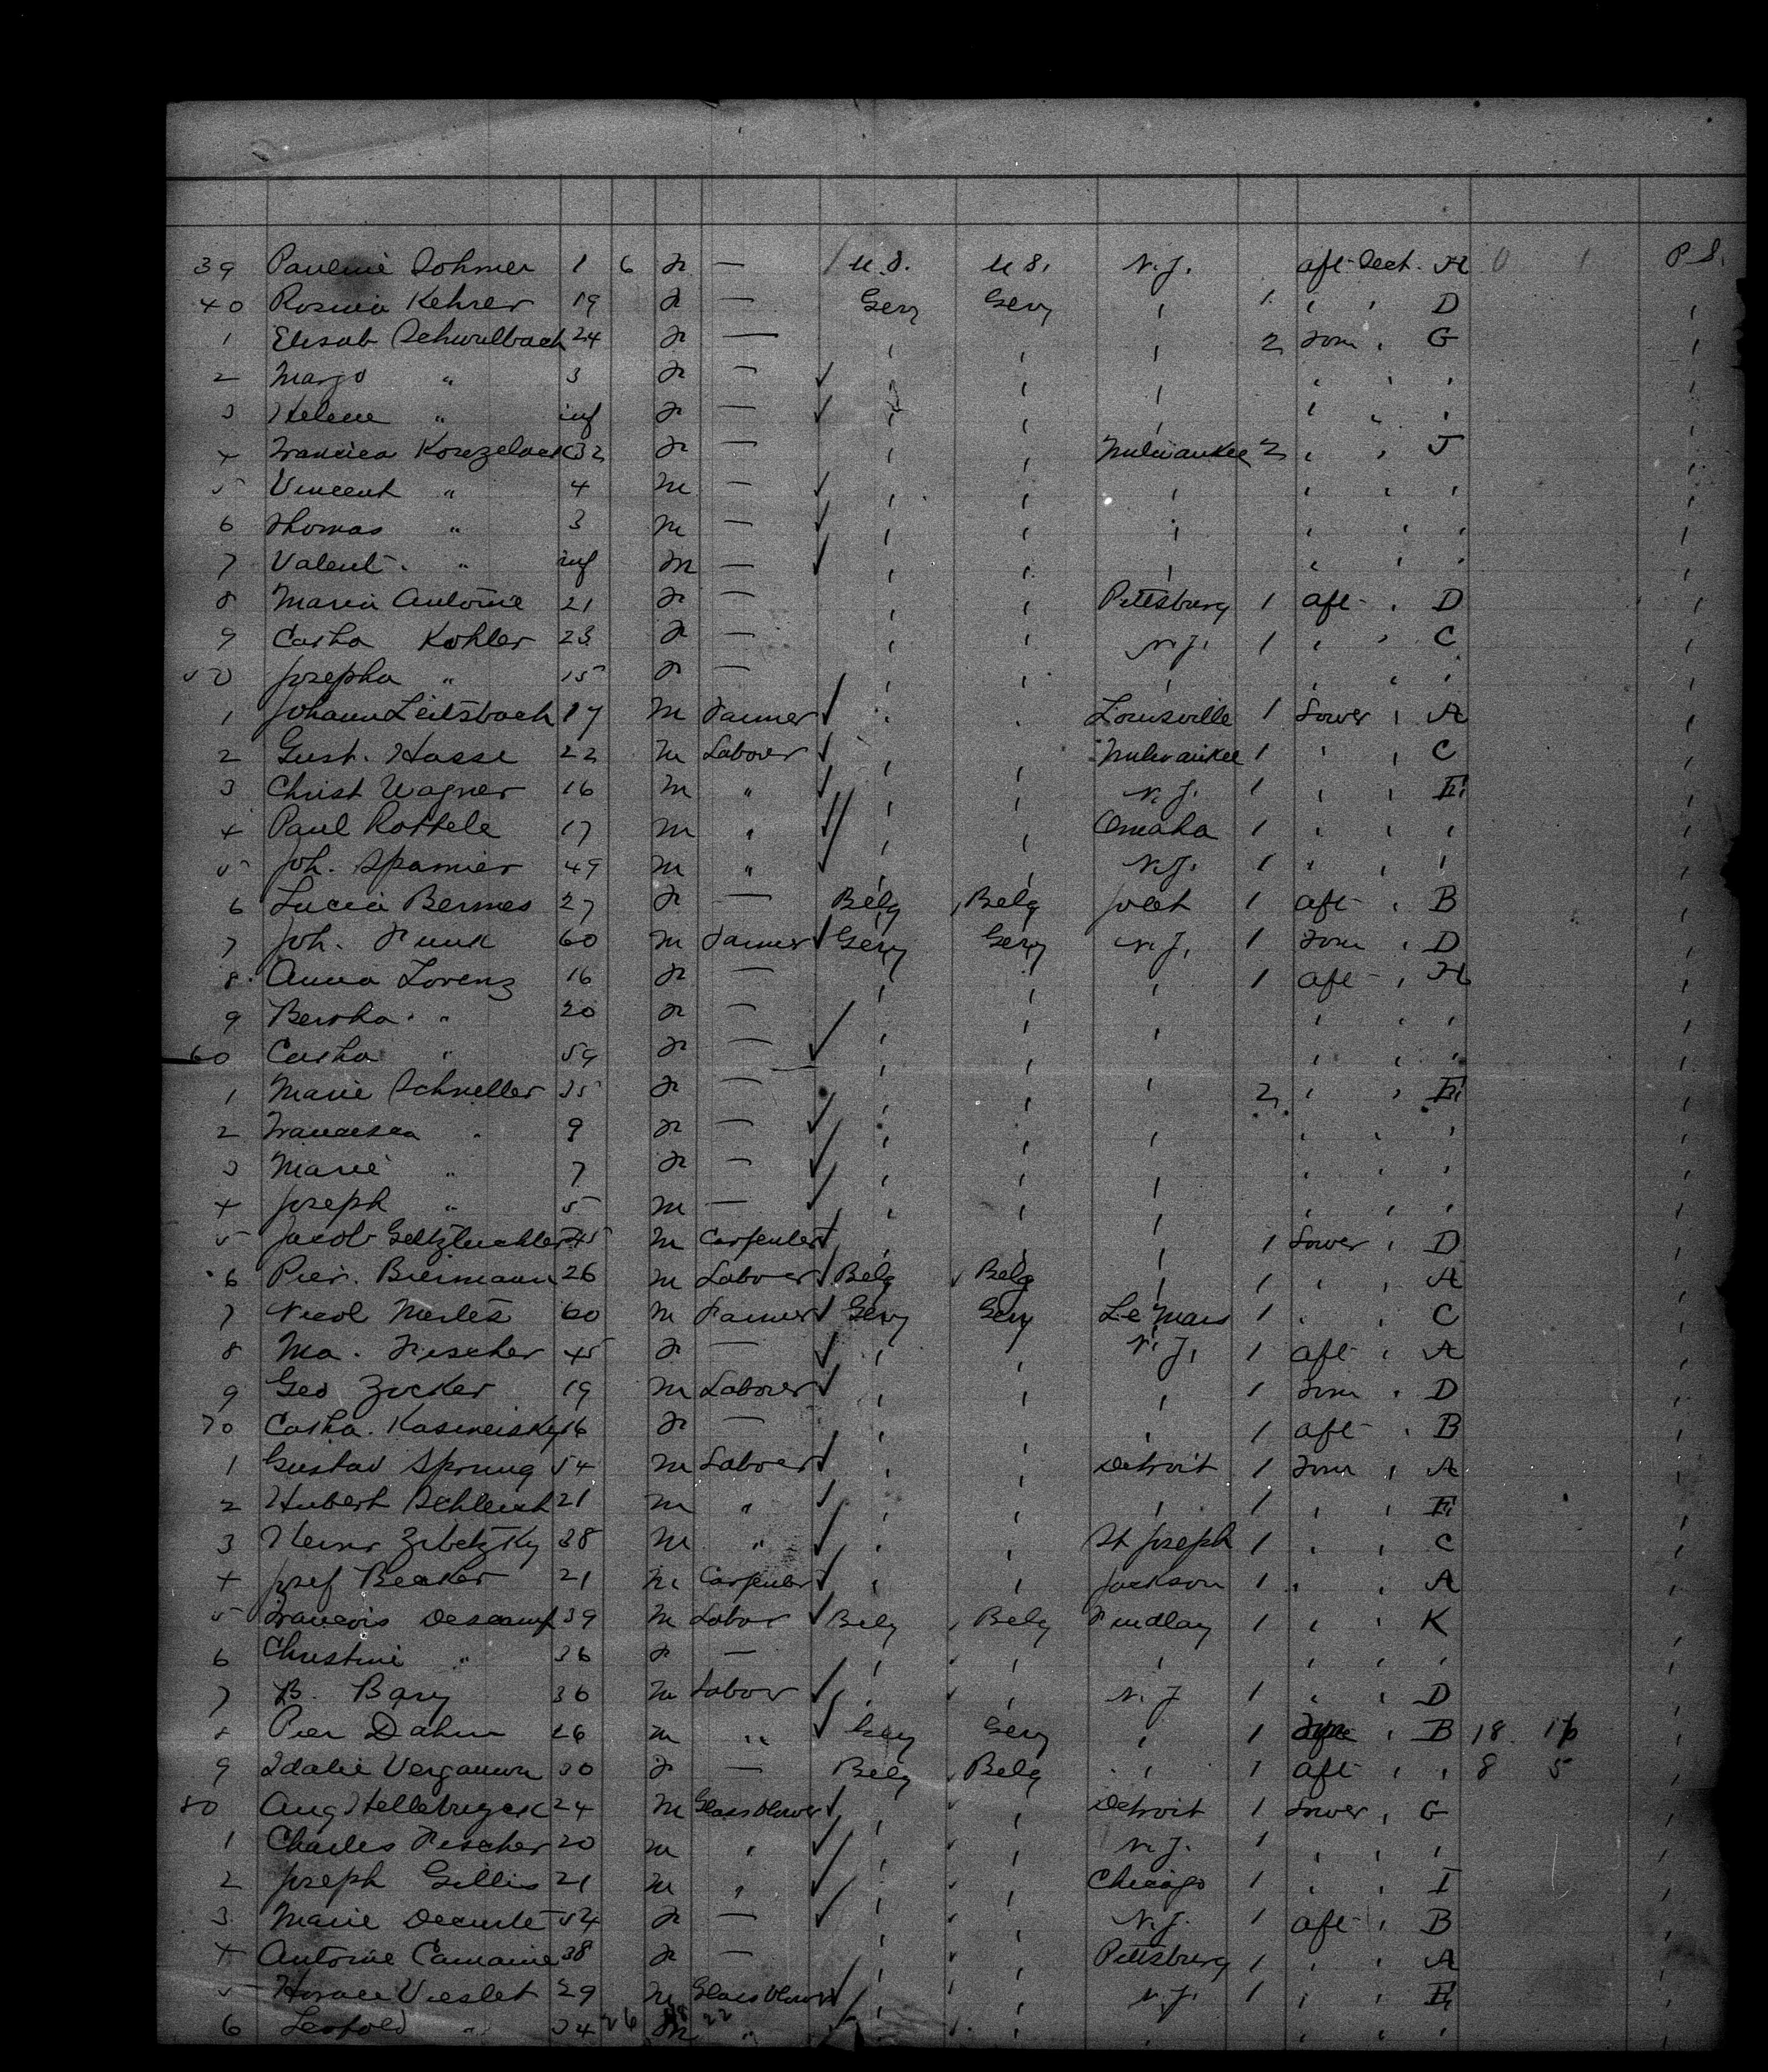 39 Paulenie Dohmer 1 6 F — / U.S. U.S. N.Y. aft Deck. H 0 1 P S.
40 Rosina Kehrer 19 F — Gery Gery " 1 " " D "
1 Elisab Schwulbach 24 F — " " " 2 Fore " G "
2 Margo " 3 F — ✓ " " " " " " "
3 Helene " inf F — ✓ " " " " " " "
4 Francisca Korezelack 32 F — " " Milwaukee 2 " " J "
5 Vincent " 4 M — ✓ " " " " " " "
6 Thomas " 3 M — ✓ " " " " " " "
7 Valent. " inf M — ✓ " " " " " " "
8 Maria Antonie 21 F — " " Pittsburg 1 aft " D "
9 Catha Kohler 23 F — " " N.Y. 1 " " C "
50 Josepha " 15 F — " " " " " " "
1 Johann Leitsbach 17 M Farmer ✓ " " Louisville 1 Lower " A "
2 Gust. Hasse 22 M Labour ✓ " " Milwaukee 1 " " C "
3 Christ Wagner 16 M " ✓ " " N.Y. 1 " " E "
4 Paul Rottele 17 M " ✓/ " " Omaha 1 " " " "
5 Joh. Spanier 49 M " ✓ " " N.Y. 1 " " " "
6 Lucia Bermes 27 F — Belg Belg Joliet 1 aft " B "
7 Joh. Funk 60 M Farmer ✓ Gery Gery N.Y. 1 Fore " D "
8 Anna Lorenz 16 F — " " " 1 aft " H "
9 Bertha " 20 F — " " " " " " "
60 Catha " 59 F — ✓ " " " " " "
1 Marie Schneller 35 F — " " " 2 " " E "
2 Francisca " 9 F — ✓ " " " " " " "
3 Marie " 7 F — ✓ " " " " " "
4 Joseph " 5 M — ✓ " " " " " " "
5 Jacob 45 M Carpenter ✓ " " " 1 Lower " D "
6 Pier. Biermann 26 M Labour ✓ Belg ✓ Belg " 1 " " A "
7 Nicol Merles 60 M Farmer ✓ Gery Gery Le Mars 1 " " C "
8 Ma. Fischer 45 F — ✓ " " N.Y. 1 aft " A "
9 Geo Zocker 19 M Labour ✓ " " " 1 Fore " D "
70 Catha. Kasmeisky 16 F — " " " 1 aft " B "
1 Gustav Sprung 54 M Labour ✓ " " Detroit 1 Fore " A "
2 Hubert Schleich 21 M " ✓ " " " 1 " " E "
3 Heinr Zibetzky 38 M " ✓ " " St Joseph 1 " " C "
4 Josef Becker 21 M Carpenter ✓ " " Jackson 1 " " A "
5 Francois Descamp 39 M Labor ✓ Belg ✓ Belg Findlay 1 " " K "
6 Christine " 36 F — " ✓ " " " " " "
7 B. Bary 36 M Labor ✓ " ✓ " N.Y 1 " " D "
8 Pier Dahm 26 M " ✓ Gery Gery " 1 " B 18 16 "
9 Idalie Vergauwn 30 F — Belg ✓ Belg " 1 aft " " 8 5 "
80 Aug Hellebuyck 24 M Glassblower ✓ " ✓ " Detroit 1 Lower " G "
1 Charles Fischer 20 M " ✓ " ✓ " N.Y. 1 " " " "
2 Joseph Gillis 21 M " ✓ " ✓ " Chicago 1 " " I "
3 Marie Decurte 54 F — ✓ " ✓ " N.Y. 1 aft " B "
4 Antoine Camaine 38 F — " ✓ " Pittsburg 1 " " A "
5 Horace Vieslet 29 M Glassblower ✓ " " N.Y. 1 " " E "
6 Leopold " 34 26 M 22 " ✓ " ✓ " " " " " "